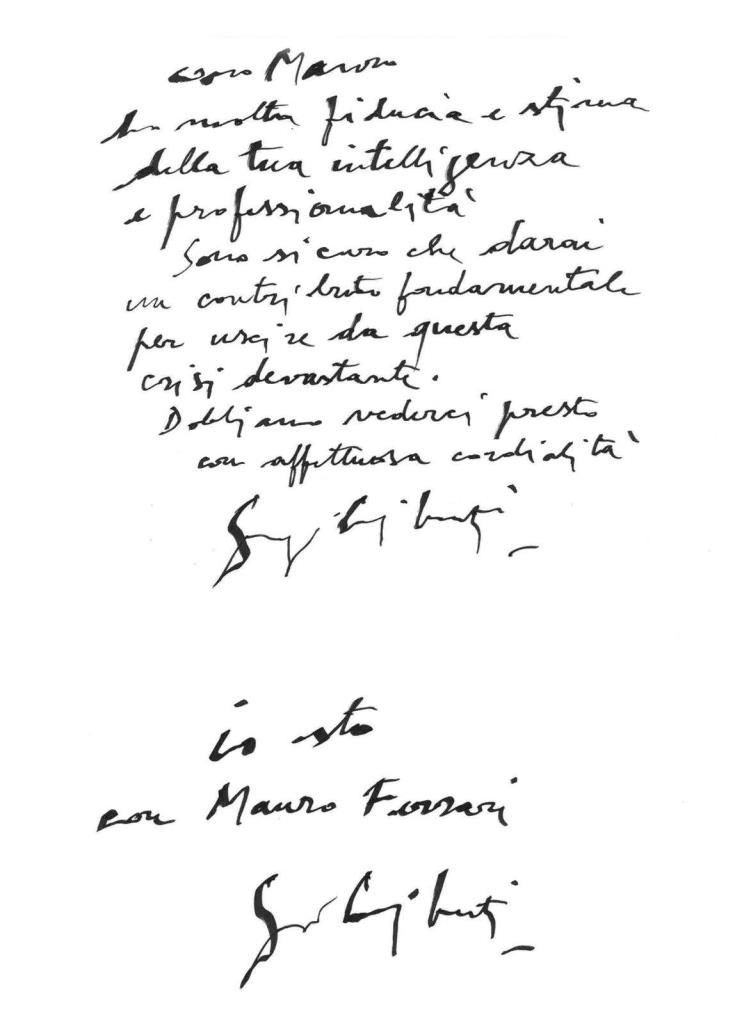 caro Mauro
ho molta fiducia e stima
della tua intelligenza
e professionalità
Sono sicuro che darai
un contributo fondamentale
per uscire da questa
crisi devastante.
Dobbiamo vederci presto
con affettuosa cordialità
io sto
con Mauro Ferrari